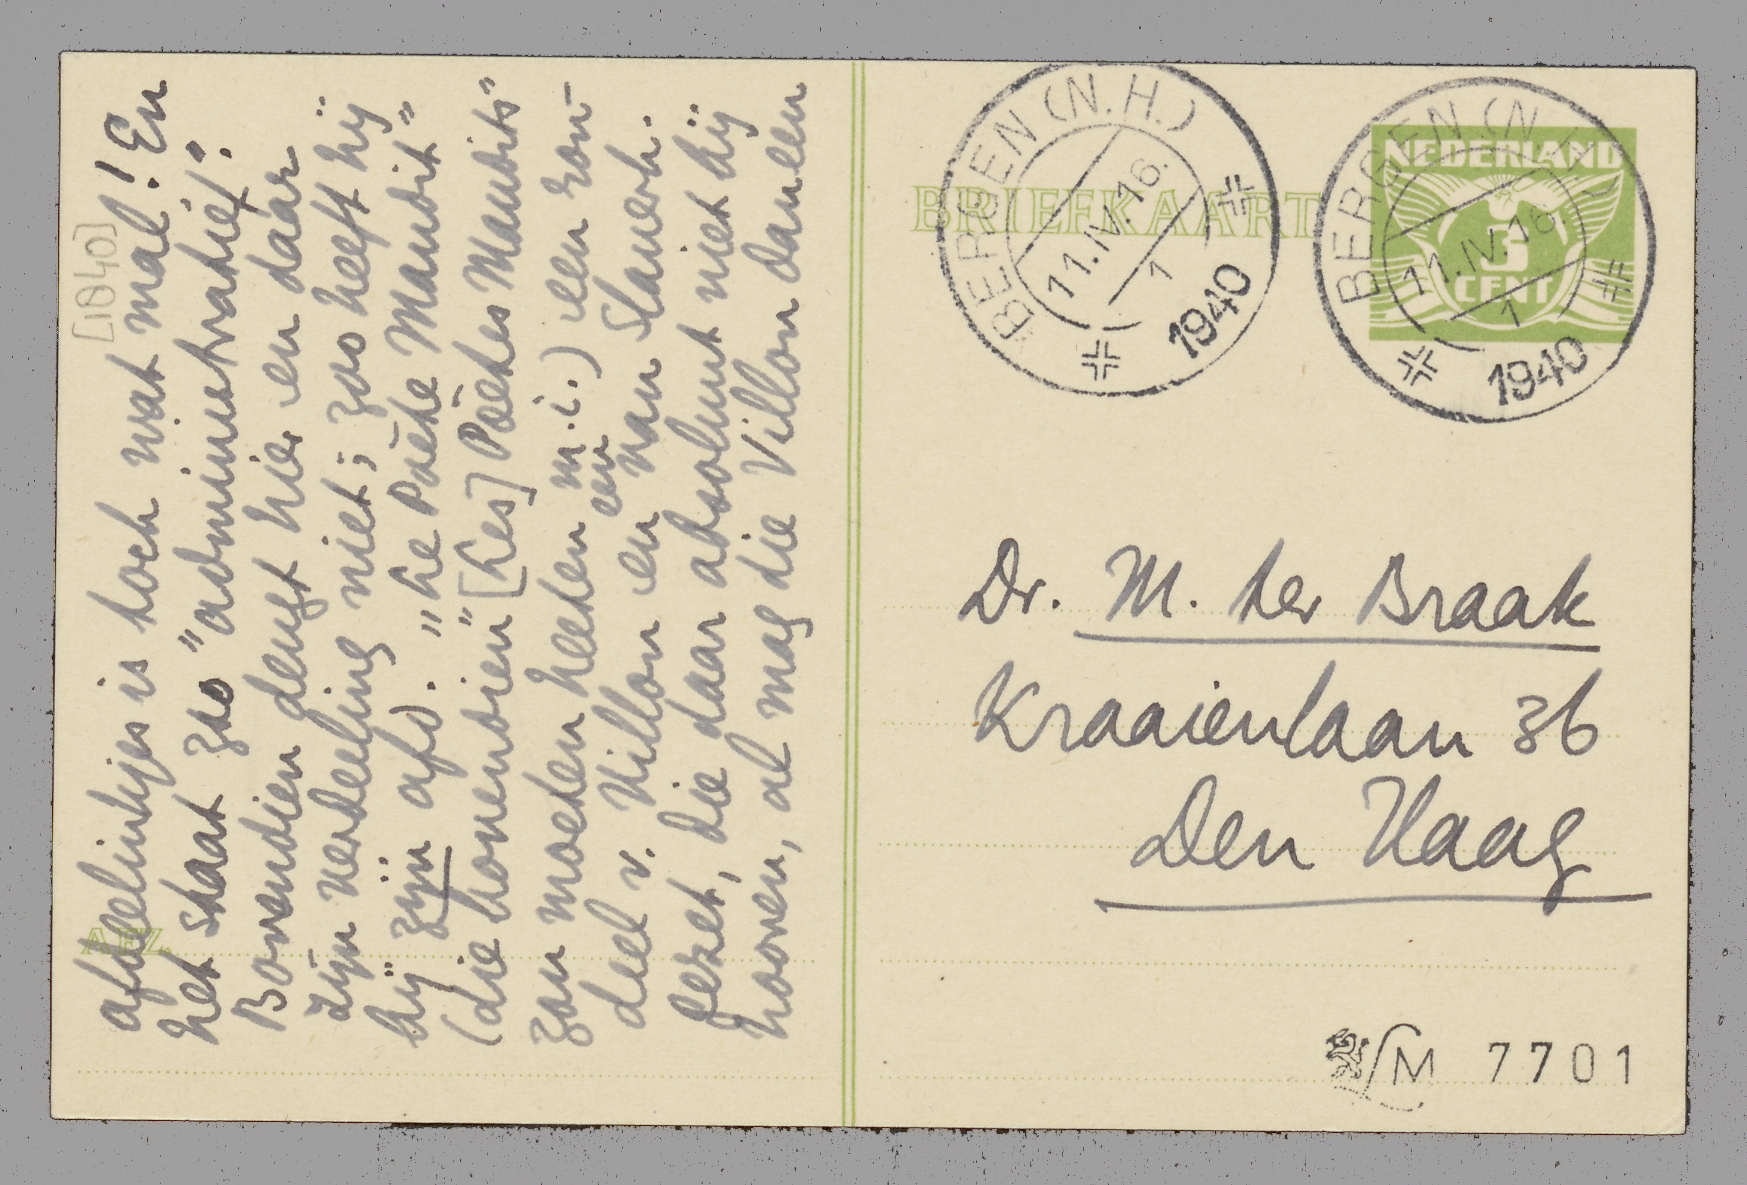 [1940]
afdeelinkjes is toch wat mal! En
het staat zoo "administratief".
Bovendien deugt hier en daar
zijn verdeeling niet; zoo heeft hij
bij zijn afd. "Le Poète Maudit"
(die bovendien "[Les] Poètes Maudits"
zou moeten heeten m.i.) een ron-
deel v. Villon en een van Slauerh.
gezet, die daar absoluut niet bij
hooren, al mag die Villon daneen
AFZ.
BRIEFKAART
NEDERLAND
3
CENT
BERGEN (N.H.)
11.IV.16
1
1940
BERGEN (N.H.)
11.IV.16
1
1940
Dr. M. ter Braak
Kraaienlaan 36
Den Haag
M 7701